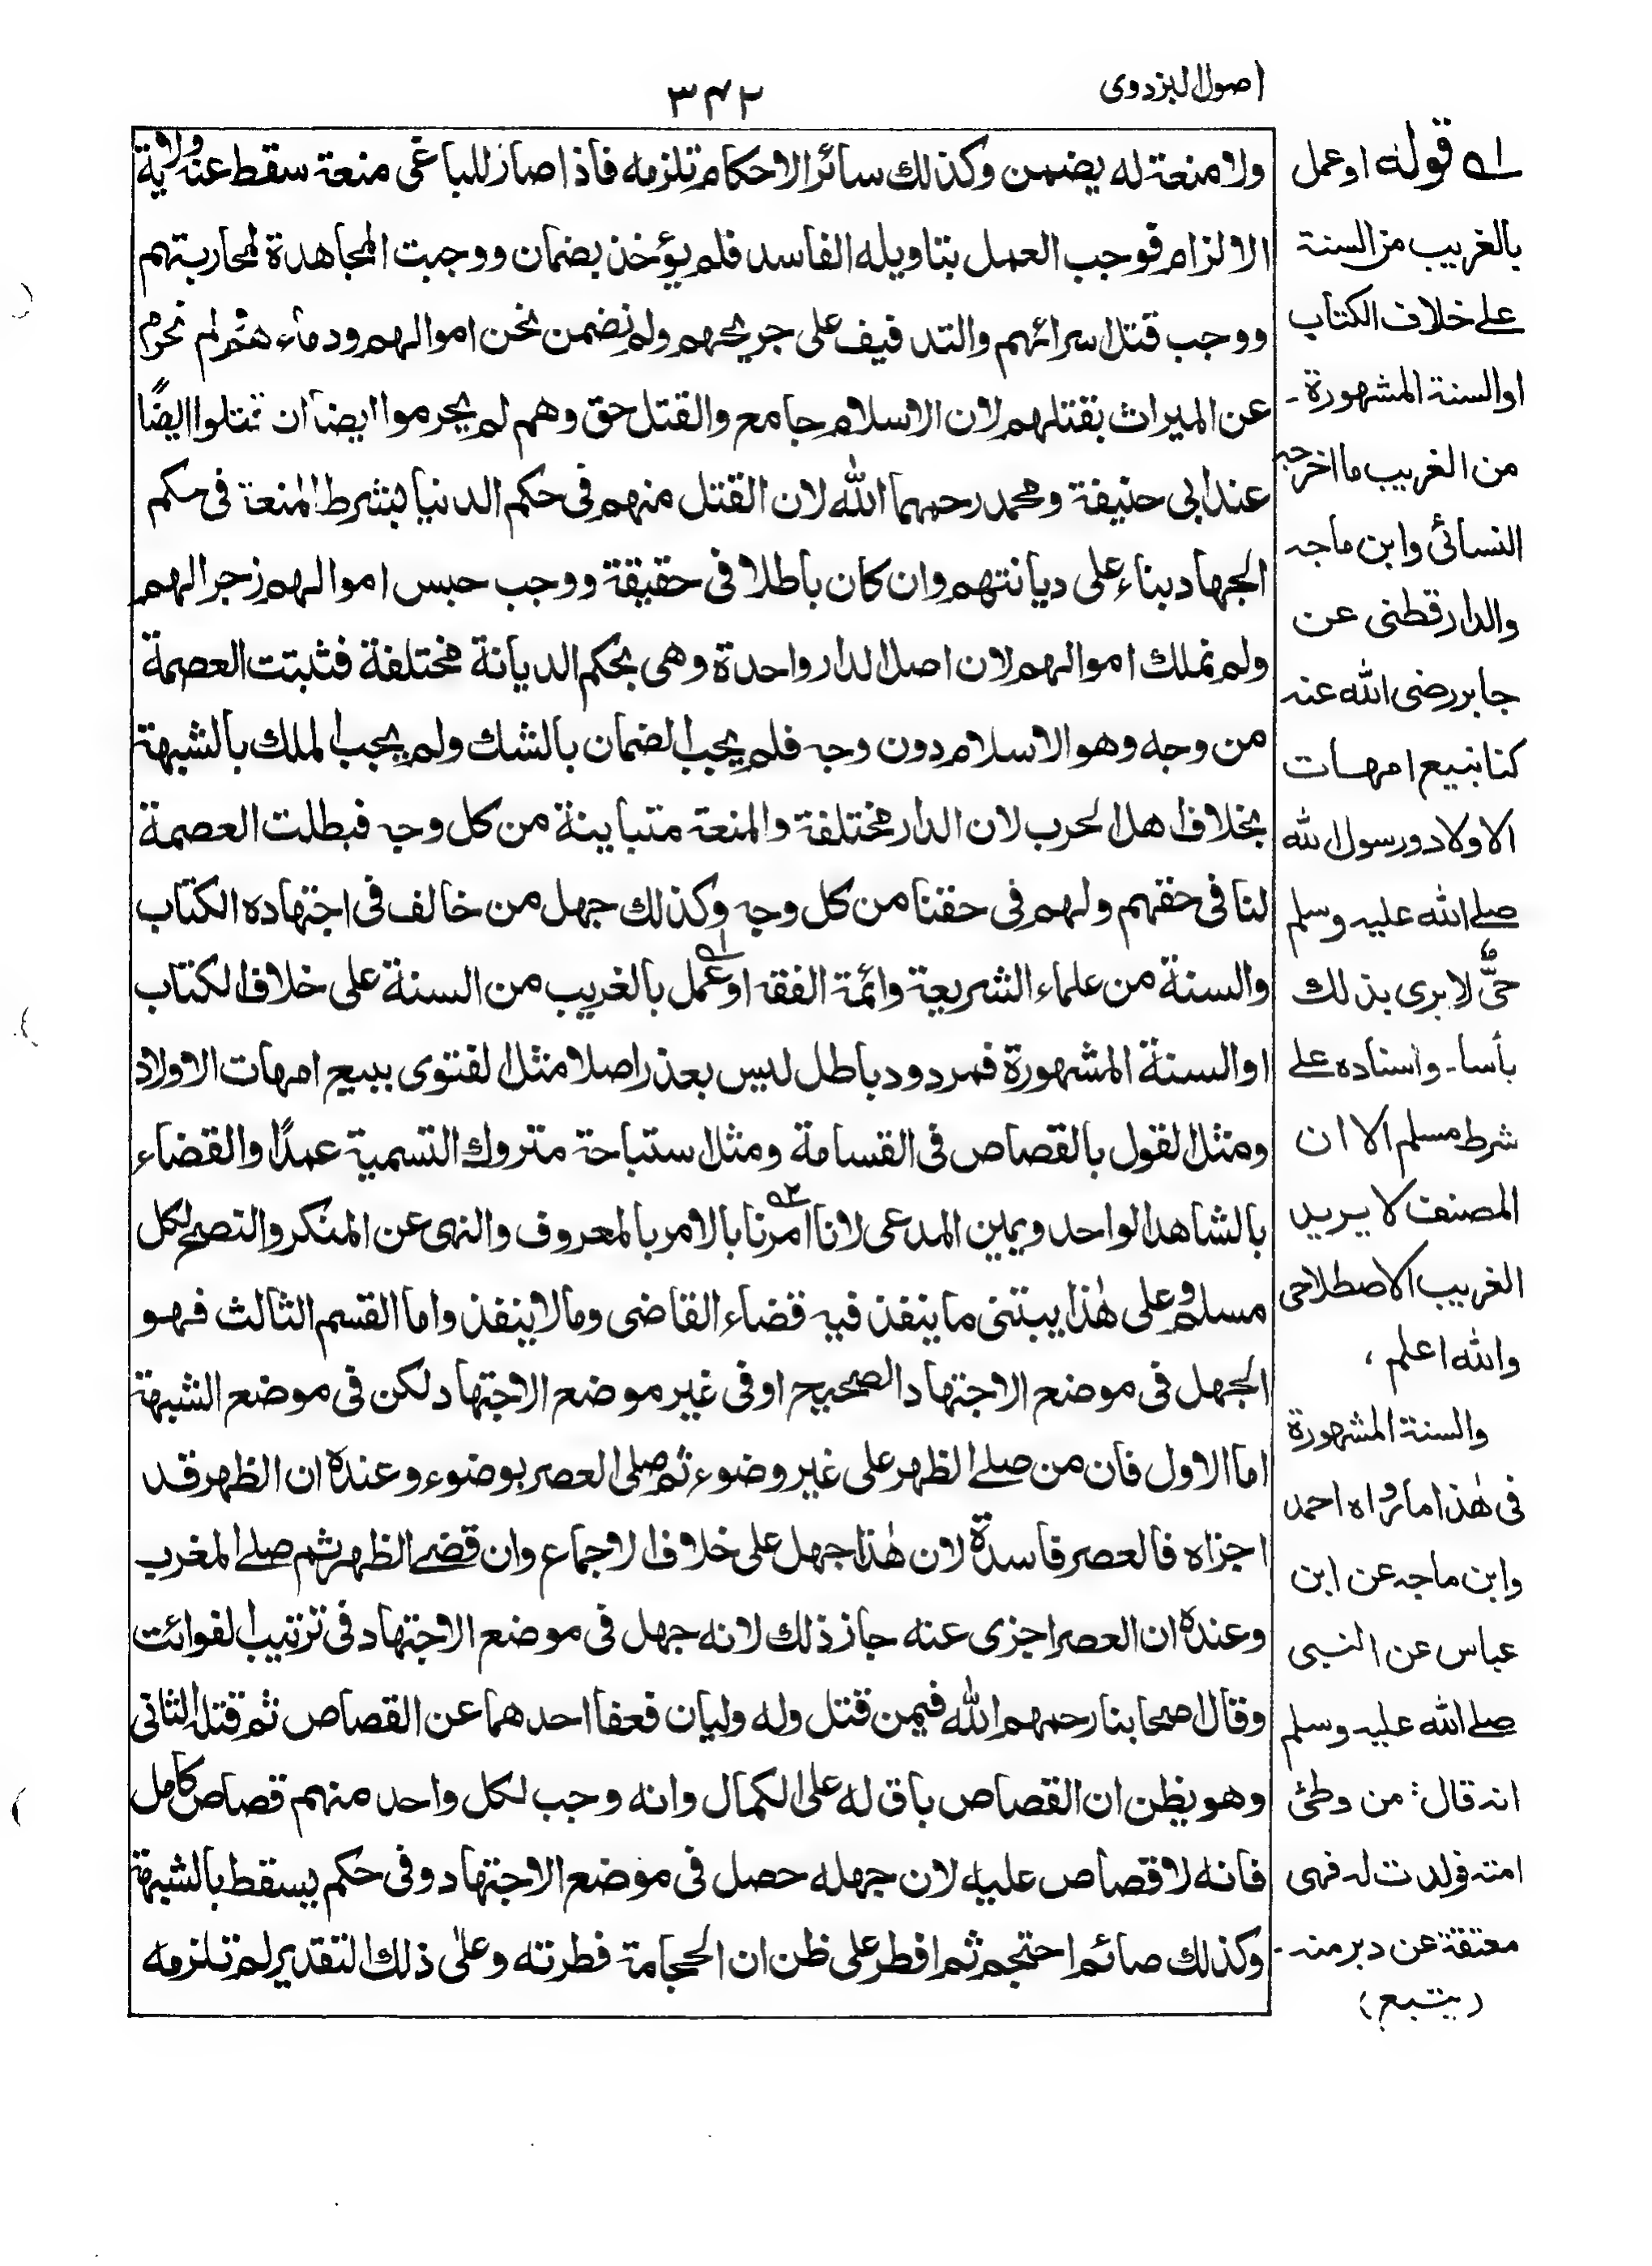 اصول البزدوی
۳۴۲
ولا منعة له يضمن وكذلك سائر الاحكام تلزمه فاذا صار للباغى منعة سقط عنه ولاية
الالزام فوجب العمل بتاويله الفاسد فلم يؤخذ بضمان ووجبت المجاهدة لمحاربتهم
ووجب قتل اسرائهم والتدفيف على جريحهم ولم نضمن نحن اموالهم ودماءهم ولم نحرم
عن الميراث بقتلهم لان الاسلام جامع والقتل حق وهم لم يحرموا ايضا ان قتلوا ايضًا
عند ابى حنيفة ومحمد رحمهما الله لان القتل منهم فى حكم الدنيا بشرط المنعة فى حكم
الجهاد بناء على ديانتهم وان كان باطلا فى حقيقة ووجب حبس اموالهم زجرا لهم
ولم نملك اموالهم لان اصل الدار واحدة وهى بحكم الديانة مختلفة فثبتت العصمة
من وجه وهو الاسلام دون وجه فلم يجب الضمان بالشك ولم يجب الملك بالشبهة
بخلاف اهل الحرب لان الدار مختلفة والمنعة متباينة من كل وجه فبطلت العصمة
لنا فى حقهم ولهم فى حقنا من كل وجه وكذلك جهل من خالف فى اجتهاده الكتاب
والسنة من علماء الشريعة وائمة الفقه او عمل بالغريب من السنة على خلاف الكتاب
او السنة المشهورة فمردود باطل ليس بعذر اصلا مثل الفتوى ببيع امهات الاولاد
ومثل القول بالقصاص فى القسامة ومثل استباحة متروك التسمية عمدًا والقضاء
بالشاهد الواحد ويمين المدعى لانا امرنا بالامر بالمعروف والنهى عن المنكر والنصح لكل
مسلم وعلى هٰذا يبتنى ما ينفذ فيه قضاء القاضى وما لا ينفذ واما القسم الثالث فهو
الجهل فى موضع الاجتهاد الصحيح او فى غير موضع الاجتهاد لكن فى موضع الشبهة
اما الاول فان من صلے الظهر على غير وضوء ثم صلى العصر بوضوء وعنده ان الظهر قد
اجزاه فالعصر فاسدة لان هٰذا جهل على خلاف الاجماع وان قضے الظهر ثم صلے المغرب
وعنده ان العصر اجزى عنه جاز ذلك لانه جهل فى موضع الاجتهاد فى ترتيب الفوائت
وقال اصحابنا رحمهم الله فيمن قتل وله وليان فعفا احدهما عن القصاص ثم قتل الثانى
وهو يظن ان القصاص باق له على الكمال وانه وجب لكل واحد منهم قصاص كامل
فانه لا قصاص عليه لان جهله حصل فى موضع الاجتهاد وفى حكم يسقط بالشبهة
وكذلك صائم احتجم ثم افطر على ظن ان الحجامة فطرته وعلى ذلك التقدير لم تلزمه
له قوله او عمل
بالغريب من السنة
علے خلاف الكتاب
او السنة المشهورة-
من الغريب ما اخرجه
النسائى وابن ماجه
والدارقطنى عن
جابر رضى الله عنه
كنا نبيع امهات
الاولاد ورسول الله
صلے الله عليه وسلم
حىٌّ لا يرى بذلك
بأسا- واسناده علے
شرط مسلم الا ان
المصنف لا يريد
الغريب الاصطلاحى
والله اعلم ،
والسنة المشهورة
فى هٰذا ما رواه احمد
وابن ماجه عن ابن
عباس عن النبى
صلے الله عليه وسلم
انه قال: من وطئ
امته فولدت له فهى
معتقة عن دبر منه-
(يتبع)